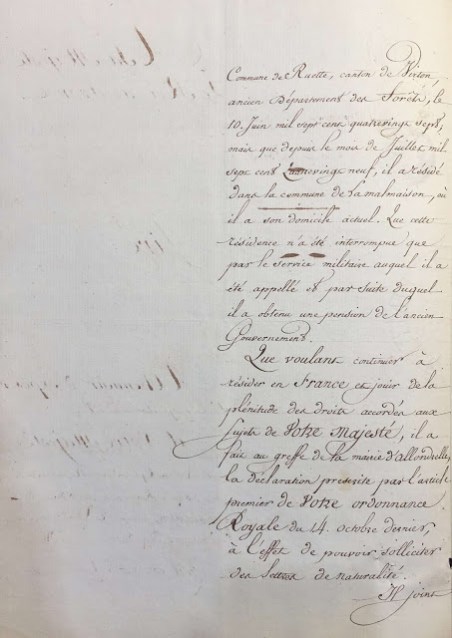 Commune de Ruette, canton de Virton,
ancien Département des Forêts, le
10. Juin mil sept cent quatrevingt sept;
mais que depuis le mois de Juillet mil
sept cent quatrevingt neuf, il a résidé
dans la commune de la malmaison, où
il a son domicile actuel. Que cette
résidence n'a été interrompue que
par le service militaire auquel il a
été appellé et par suite duquel
il a obtenu une pension de l'ancien
Gouvernement.
Que voulant continuer à
résider en France et jouir de la
plénitude des droits accordés aux
sujets de Votre Majesté, il a
fait au greffe de la mairie d'allondrelle,
la déclaration préscrite par l'article
premier de Votre ordonnance
Royale du 14. octobre dernier,
à l'effet de pouvoir solliciter
des lettres de naturalité.
Il joint